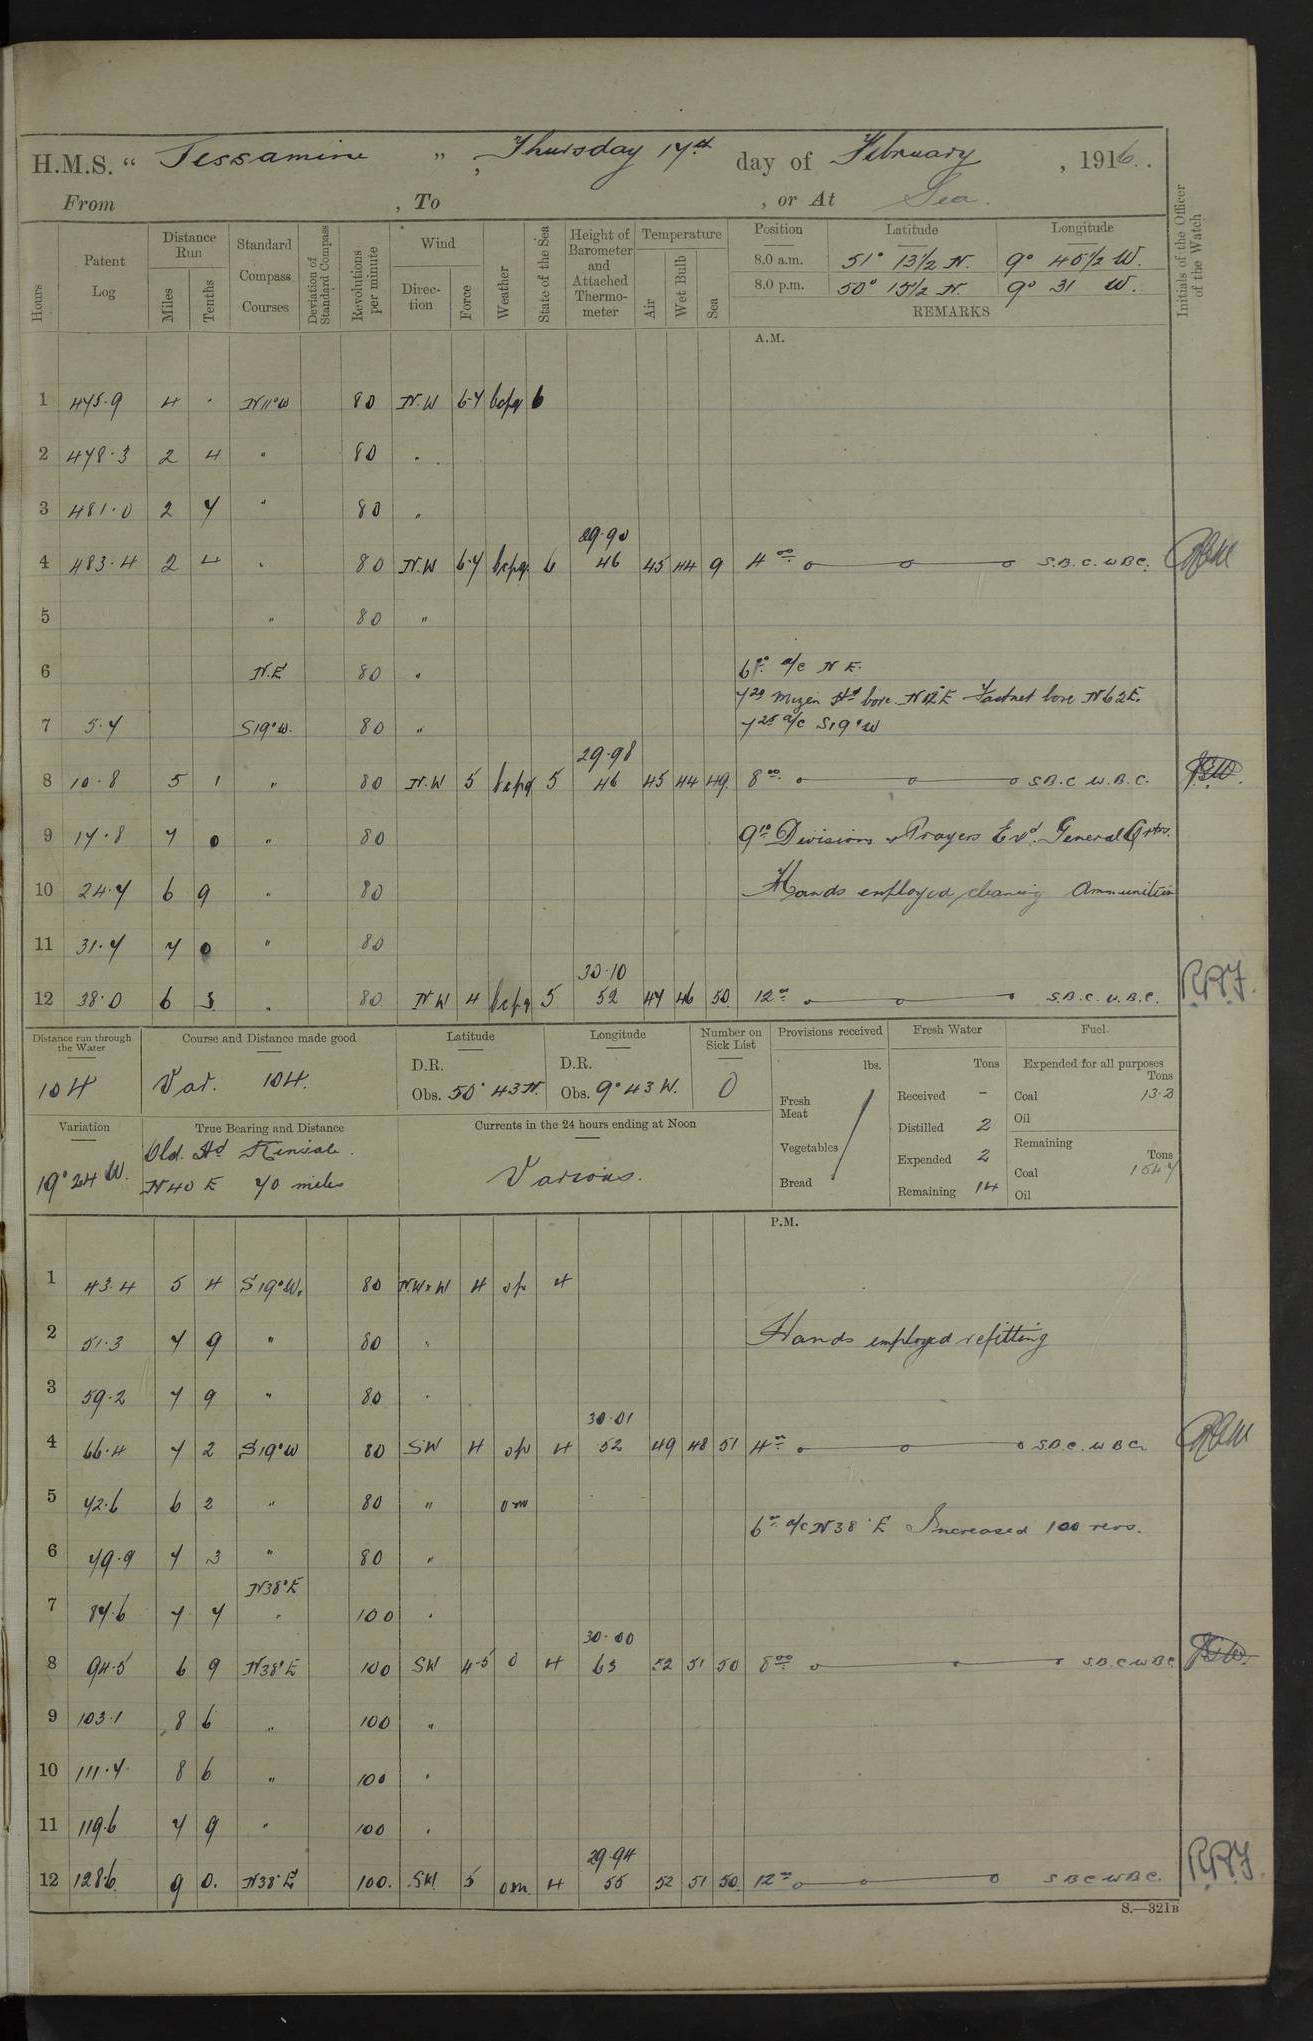 H.M.S. " Jessamine ", Thursday 17th day of February, 1916.
From , To , or At Sea.
Hours
Patent Log
Distance Run
Miles
Tenths
Standard Compass Courses
Deviation of Standard Compass
Revolutions per minute
Wind
Direction
Force
Weather
State of the Sea
Height of Barometer and Attached Thermometer
Temperature
Air
Wet Bulb
Sea
Position Latitude Longitude
8.0 a.m. 51° 13½ N. 9° 40½ W.
8.0 p.m. 50° 15½ N. 9° 31 W.
REMARKS
Initials of the Officer of the Watch
A.M.
1 475.9 4 . N11°W 80 N.W 6-7 bcpq 6
2 478.3 2 4 " 80 "
3 481.0 2 7 " 80 "
29.90
4 483.4 2 4 " 80 N.W 6-7 bcpq 6 46 45 44 9 4 00 S.B.C. W.B.C.
5 " 80 "
6 N.E 80 " 6 00 a/c N E.
7 20 Mizen Hd bore N12E Fastnet bore N62E.
7 5.7 S19°W. 80 " 7 25 a/c S19°W
29.98
8 10.8 5 1 " 80 N.W 5 bcpq 5 46 45 44 49 8 00 S.B.C W.B.C.
9 17.8 7 0 " 80 9 10 Divisions & Prayers Exd. General Qrtrs.
10 24.7 6 9 " 80 Hands employed cleaning Ammunition
11 31.7 7 0 " 80
30.10
12 38.0 6 3 " 80 N W 4 bcpq 5 52 47 46 50 12 00 S.B.C. W.B.C.
Distance run through the Water 104
Course and Distance made good Var. 104.
Latitude D.R. Obs. 50° 43 N.
Longitude D.R. Obs. 9° 43 W.
Number on Sick List 0
Provisions received lbs.
Fresh Meat
Vegetables
Bread
Fresh Water Tons
Received -
Distilled 2
Expended 2
Remaining 14
Fuel.
Expended for all purposes Tons
Coal 13.2
Oil
Remaining Tons
Coal 154.7
Oil
Variation 19° 24 W.
True Bearing and Distance Old Hd Kinsale. N40 E 70 miles
Currents in the 24 hours ending at Noon Various.
P.M.
1 43.4 5 4 S19°W. 80 N.W x W 4 op 4
2 51.3 7 9 " 80 " Hands employed refitting
3 59.2 7 9 " 80 "
30.01
4 66.4 7 2 S19°W 80 SW 4 op 4 52 49 48 51 4 00 S.B.C. W B C.
5 72.6 6 2 " 80 " om
6 00 a/c N38°E Increased 100 revs.
6 79.9 7 3 " 80 "
N38°E
7 87.6 7 7 " 100 "
30.00
8 94.5 6 9 N38°E 100 SW 4-5 0 4 63 52 51 50 8 00 S.B.C W B C
9 103.1 8 6 " 100 "
10 111.7 8 6 " 100 "
11 119.6 7 9 " 100 "
29.94
12 128.6 9 0. N38°E 100. SW. 5 om 4 55 52 51 50. 12 00 S B C W B C.
S.—321B